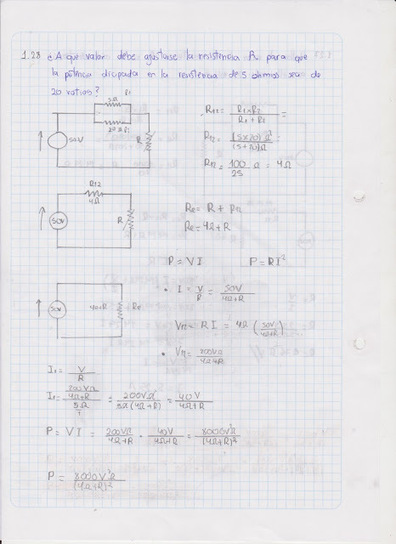 1.28 ¿A que valor debe ajustarse la resistencia R para que
la potencia disipada en la resistencia de 5 ohmos sea de
20 vatios?
R1
5Ω
20Ω R2
50V
R
R12 = R1×R2 / R1+R2 =
R12 = (5×20)Ω² / (5+20)Ω
R12 = 100/25 Ω = 4Ω
R12
4Ω
50V
R
Re = R + R12
Re = 4Ω+R
P = VI P = RI²
50V
4Ω+R
Re
• I = V/R = 50V / 4Ω+R
V12 = RI = 4Ω (50V / 4Ω+R)
• V12 = 200VΩ / 4Ω+R
I1 = V/R
I1 = (200VΩ / 4Ω+R) / 5Ω = 200VΩ / 5Ω(4Ω+R) = 40V / 4Ω+R
P = VI = 200VΩ / 4Ω+R · 40V / 4Ω+R = 8000V²Ω / (4Ω+R)²
P = 8000V²Ω / (4Ω+R)²